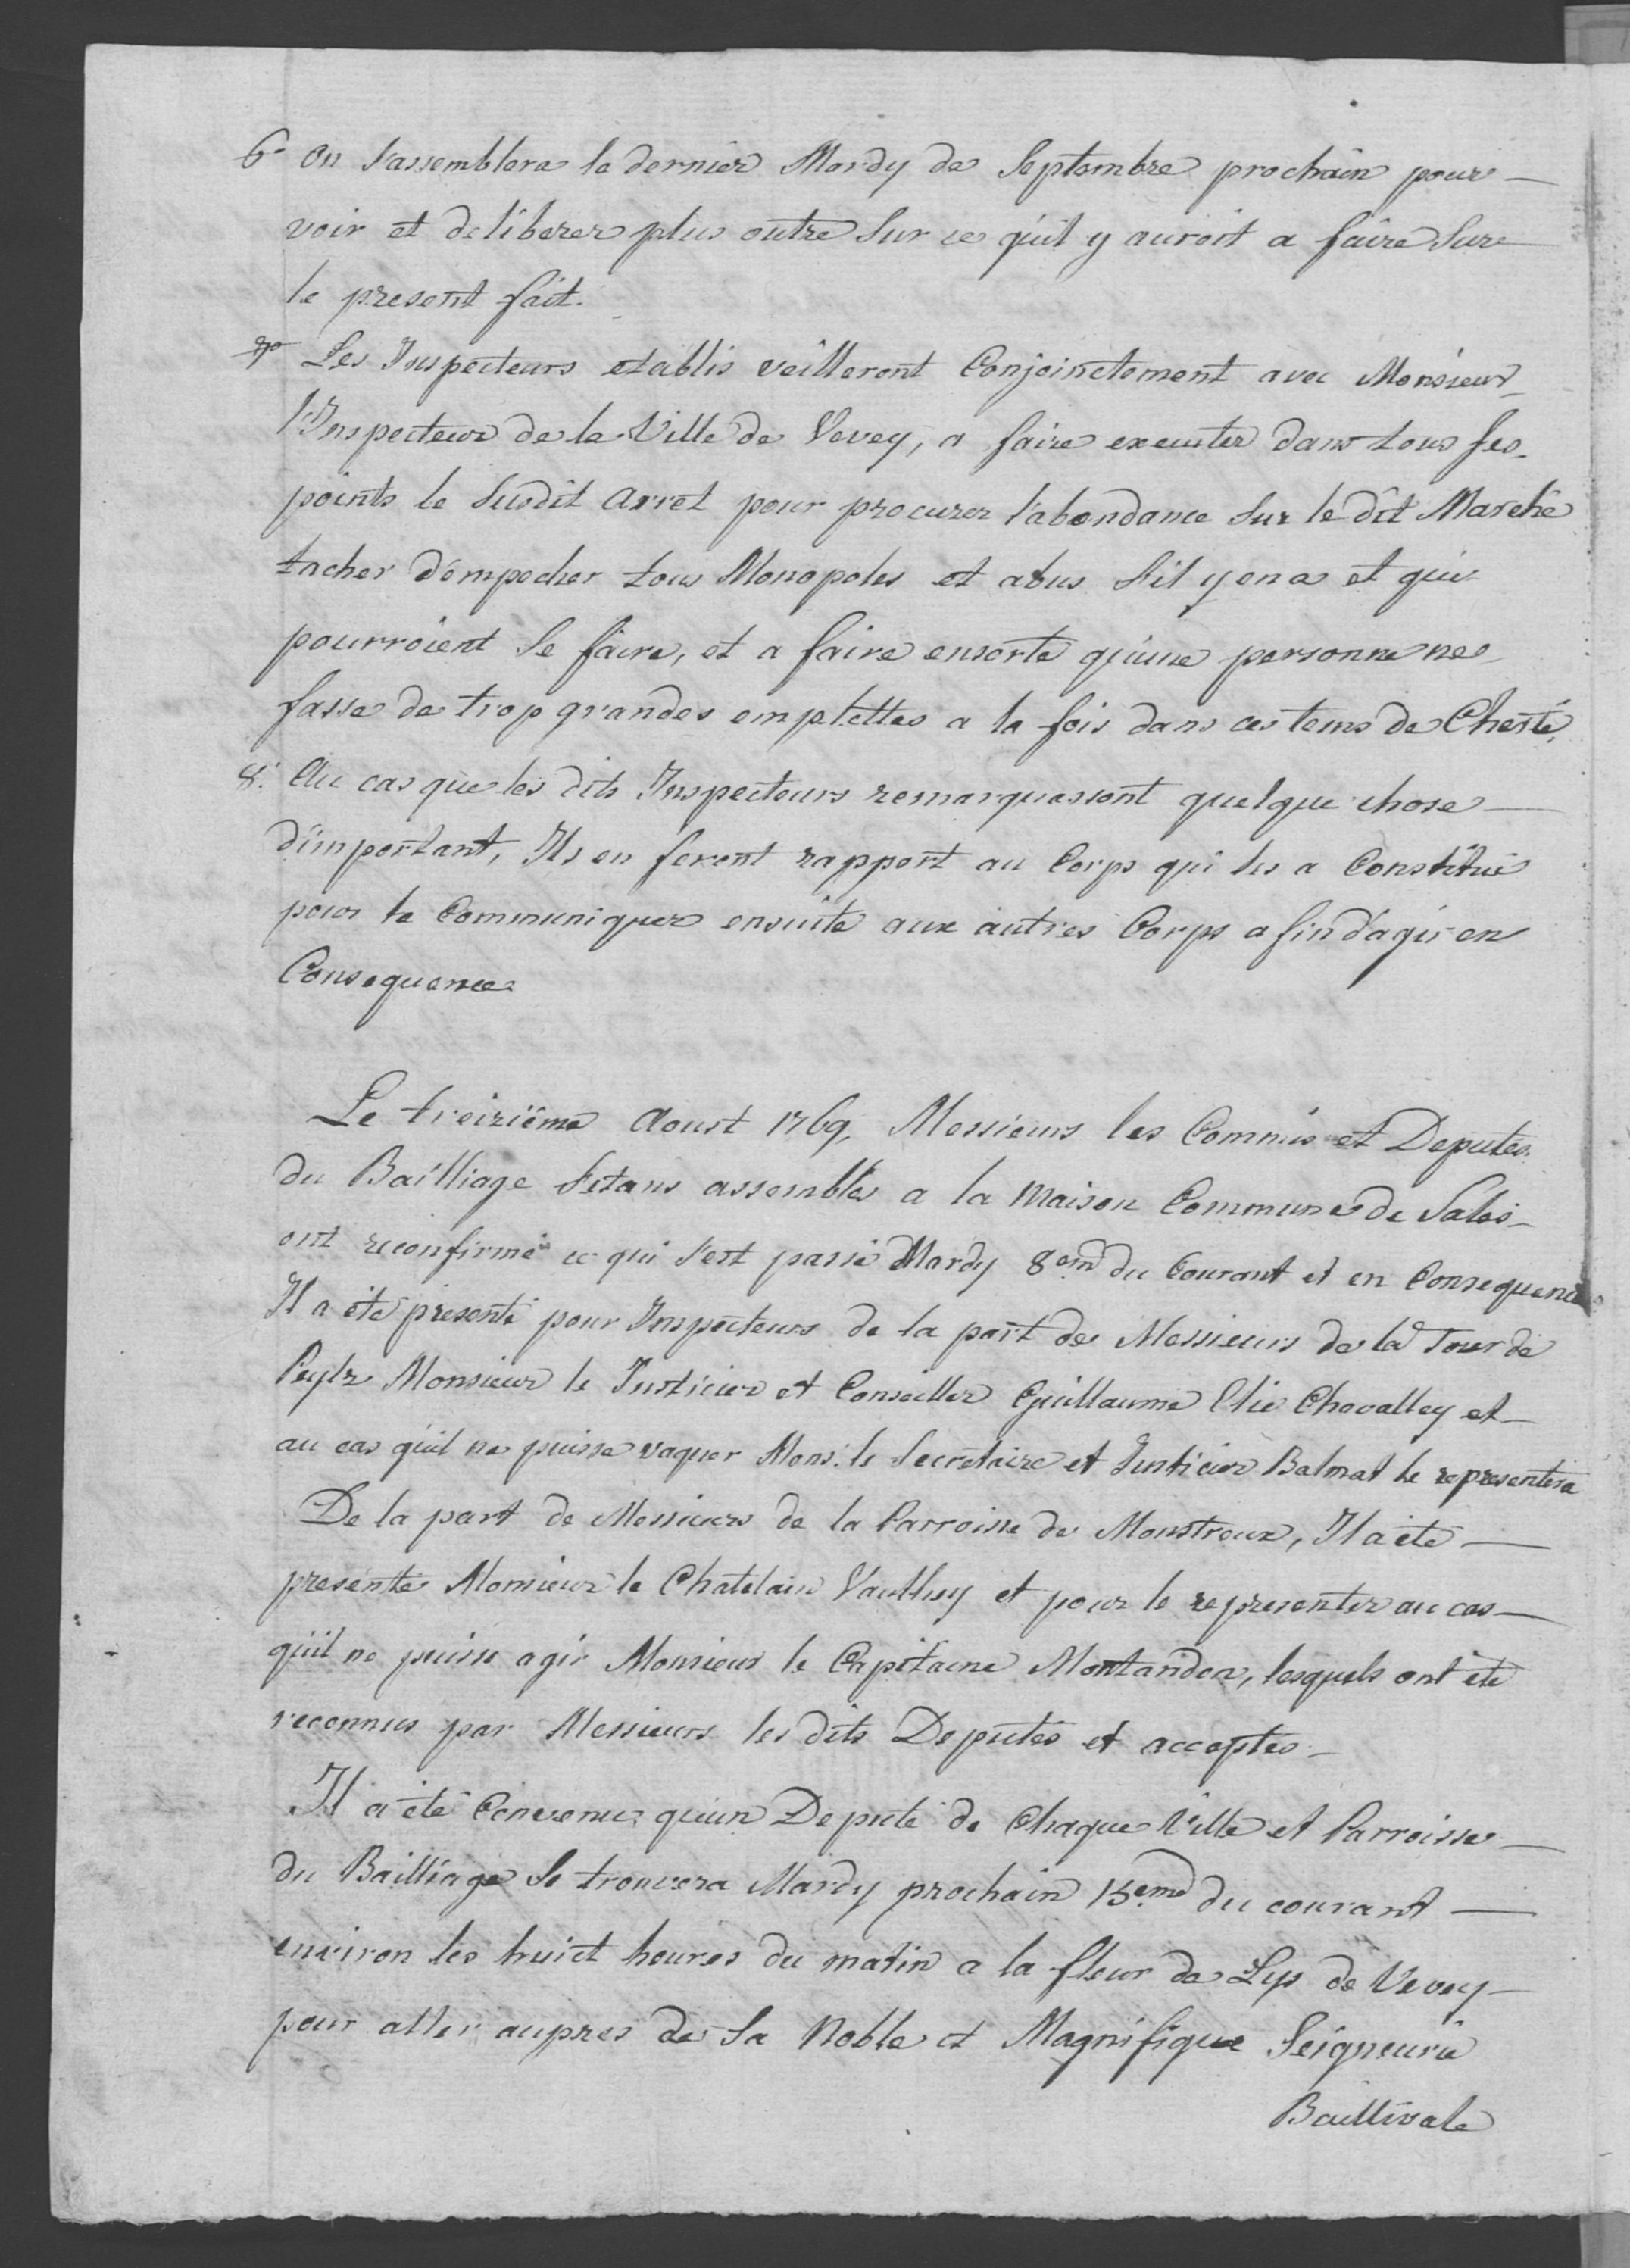 6° on s'assemblera le dernier Mardy de Septembre prochain pour
voir et deliberer plus outre sur ce qu'il y auroit a faire sur
le present fait.
7° Les Inspecteurs etablis veilleront Conjoinctement avec Monsieur
l'Inspecteur de la Ville de Vevey, a faire executer dans tous ses
points le susdit arret pour procurer l'abondance sur le dit Marché
tacher d'empecher tous Monopoles et abus s'il y en a et qui
pourroient se faire, et a faire ensorte qu'une personne ne
fasse de trop grandes emplettes a la fois dans ces tems de Cherté,
8° Au cas que les dits Inspecteurs remarquassent quelque chose
d'important, Ils en feront rapport au Corps qui les a Constitué
pour le Communiquer ensuite aux autres Corps afin d'agir en
Consequence
Le treiziême Aoust 1769, Messieurs les Commis et Deputés
du Bailliage s'etans assemblés a la Maison Commune de Sales
ont reconfirmé ce qui s'est passé Mardy 8eme du Courant et en Consequence
Il a été presenté pour Inspecteurs de la part de Messieurs de la Tour de
Peylz Monsieur le Justicier et Conseiller Guillaume Elie Chevalley et
au cas qu'il ne puisse vaquer Mons: le Secretaire et Justicier Balmat le representera
De la part de Messieurs de la Parroisse de Monstreux, Il a été
presenté Monsieur le Chatelain Vauthey et pour le representer au cas
qu'il ne puisse agir Monsieur le Capitaine Montandon, lesquels ont été
reconnus par Messieurs les dits Deputés et acceptés
Il a été Convenu qu'un Deputé de Chaque Ville et Parroisse
du Bailliage se trouvera Mardy prochain 15eme du courant
environ les huict heures du matin a la fleur de Lys de Vevey
pour aller aupres de Sa Noble et Magnifique Seigneurie
Baillivale